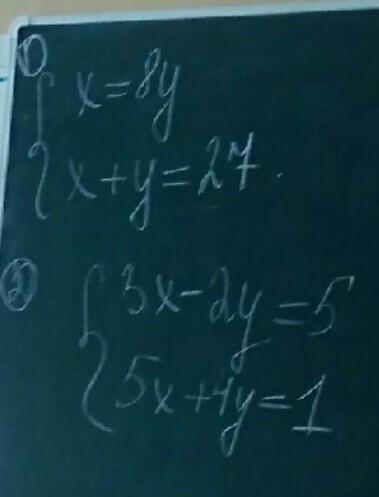 1)
{ x=8y
x+y=27.
2)
{ 3x-2y=5
5x+4y=1